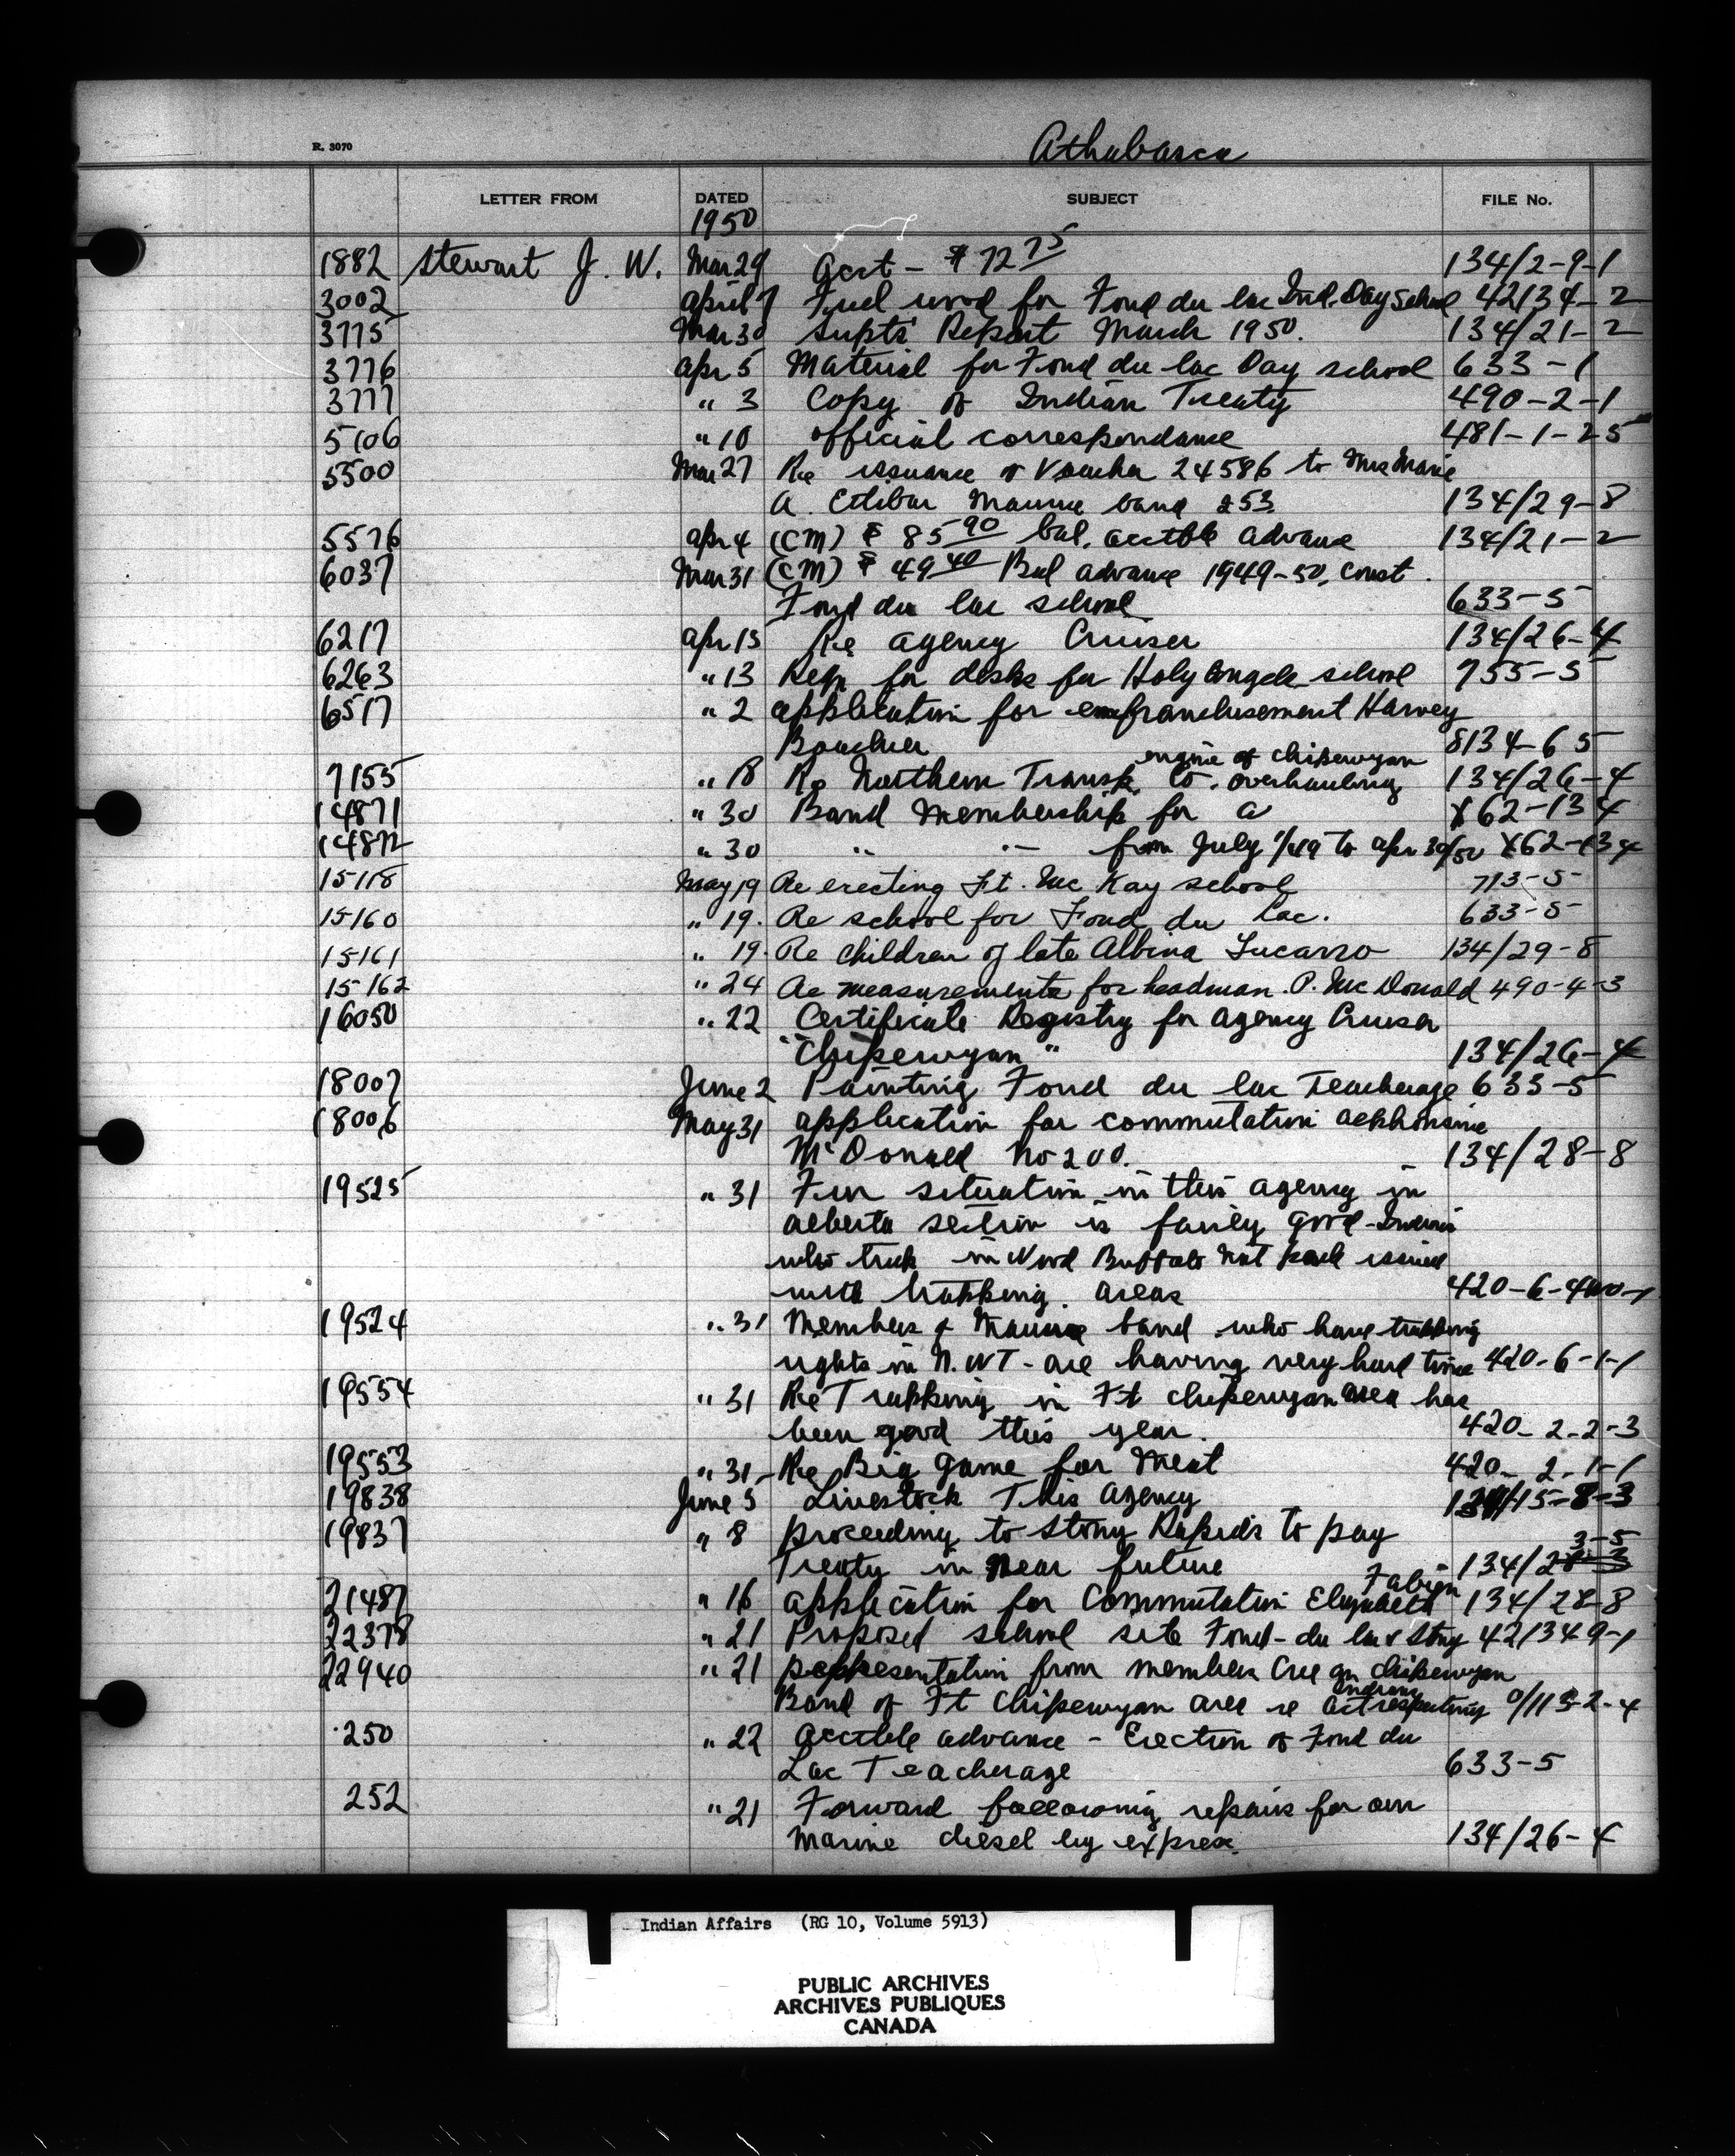 R. 3070
Athabasca
LETTER FROM DATED SUBJECT FILE No.
1950
1882 Stewart J. W. Mar 29 Acct - $ 72 75 134/2-9-1
3002 April 7 Fuel wood for Fond du lac Ind. Day School 42134-2
3775 Mar 30 Supts' Report March 1950. 134/21-2
3776 Apr 5 Material for Fond du lac Day school 633-1
3777 " 3 Copy of Indian Treaty 490-2-1
5106 " 10 official correspondance 481-1-25
5500 Mar 27 Re issuance of Voucher 24586 to Mrs Marie
A. Maurice band 253 134/29-8
5576 Apr 4 (CM) $ 85 90 bal. acctble advance 134/21-2
6037 Mar 31 (CM) $ 49 40 Bal advance 1949-50, Const.
Fond du lac school 633-5
6217 Apr 13 Re agency Cruiser 134/26-4
6263 " 13 Reqn for desks for Holy Angels school 755-5
6517 " 2 application for enfranchisement Harvey
Boucher 8134-65
engine of Chipewyan
7155 " 18 Re Northern Transp. Co. overhauling 134/26-4
14871 " 30 Band Membership for a X62-134
14872 " 30 " " from July 1/49 to apr 30/50 X62-134
15118 May 19 Re erecting Ft. Mc Kay school 713-5
15160 " 19. Re school for Fond du Lac. 633-5
15161 " 19. Re children of late Albina Lucarro 134/29-8
15162 " 24 Re measurements for headman. P. Mc Donald 490-4-3
16050 " 22 Certificate Registry for agency Cruiser
"Chipewyan" 134/26-4
18007 June 2 Painting Fond du lac Teacherage 633-5
18006 May 31 application for commutation Alphonsine
McDonald No 200. 134/28-8
19525 " 31 Fur situation in this agency in
Alberta section is fairly good - Indians
who trap in Wood Buffalo Nat park issued
with trapping. areas 420-6-4
19524 " 31 Members of Maurice band who have trapping
rights in N. WT - are having very hard time 420-6-1-1
19554 " 31 Re Trapping in Ft Chipewyan area has
been good this year. 420-2-2-3
19553 " 31 - Re Big game for Meat 420-2-1-1
19838 June 5 Livestock This Agency 134/15-8-3
19837 " 8 proceeding to Stony Rapids to pay
3-5
Treaty in near future 134/28-3
Fabien
21487 " 16 application for Commutation Elizabeth 134/28-8
22378 " 21 Proposed school site Fond-du lac & Stony 421349-1
22940 " 21 representation from members Cree an Chipewyan
Indians
Band of Ft Chipewyan area re Act respecting 0/113-2-4
250 " 22 acctble advance - Erection of Fond du
Lac Teacherage 633-5
252 " 21 Forward following repairs for our
Marine diesel by express. 134/26-4
Indian Affairs (RG 10, Volume 5913)
PUBLIC ARCHIVES
ARCHIVES PUBLIQUES
CANADA